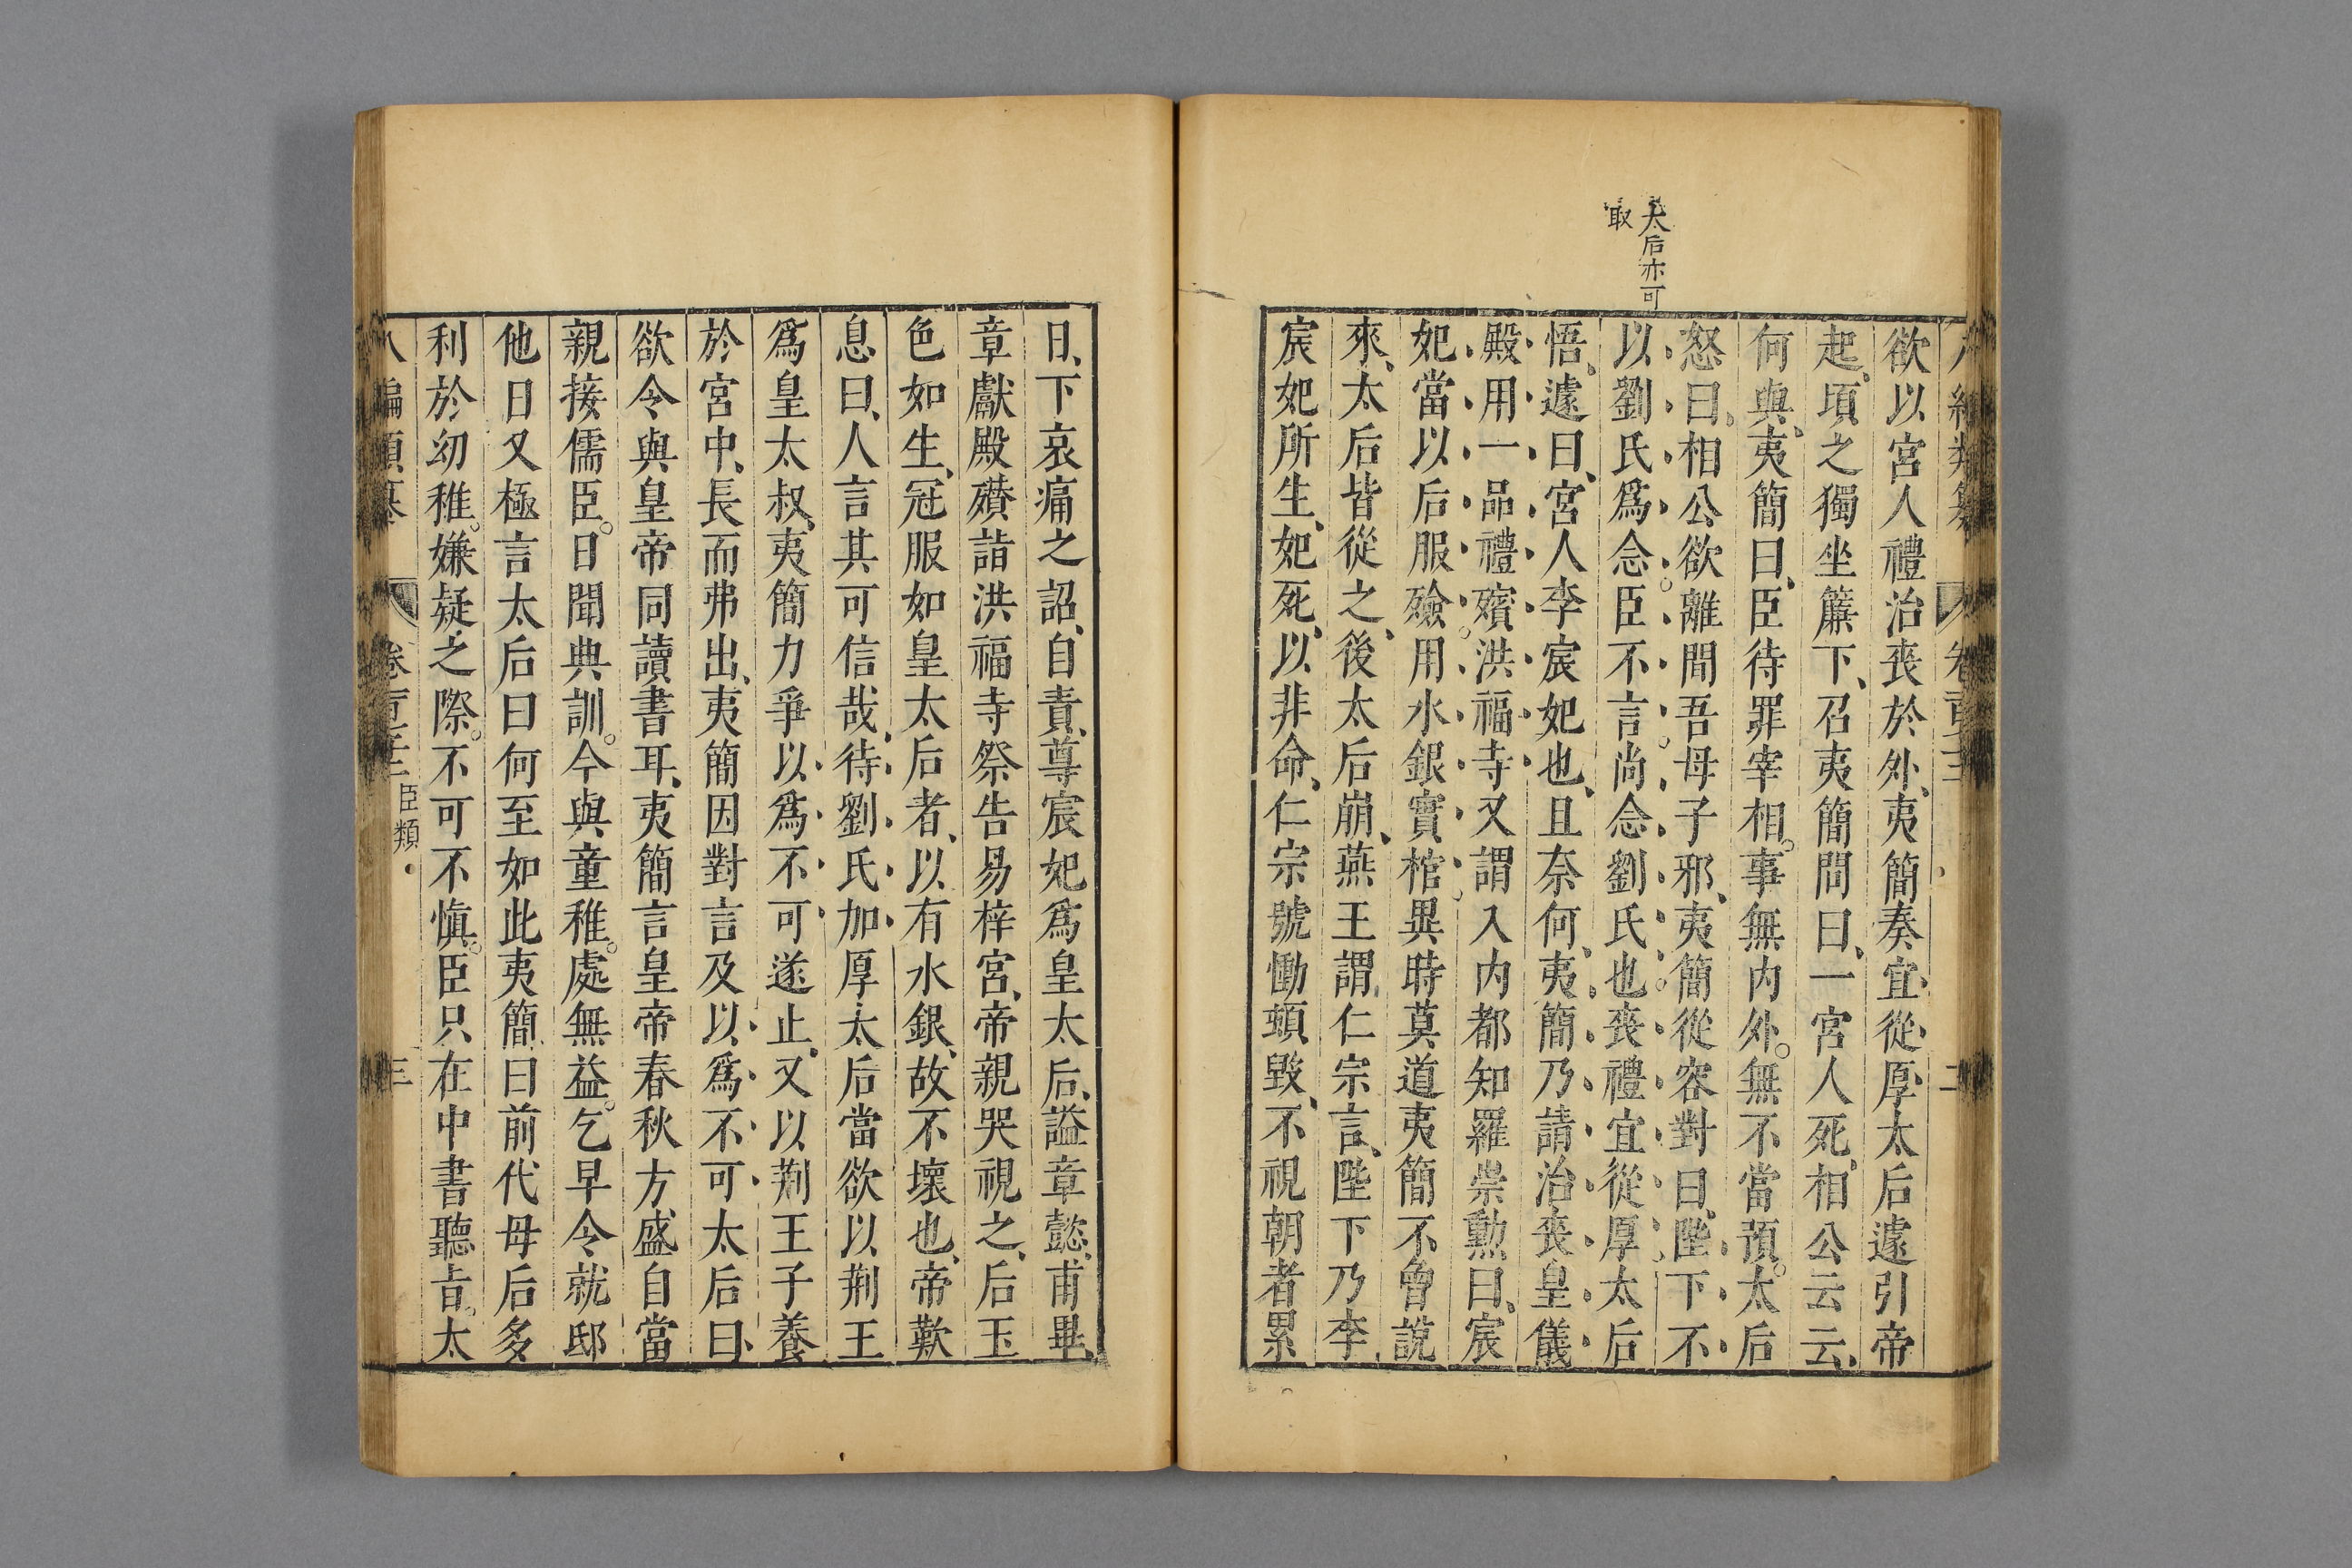 太后亦可
取
欲以宮人禮治喪於外、夷簡奏宜從厚太后遽引帝
起。頃之獨坐簾下、召夷簡問曰、一宮人死、相公云云、
何與、夷簡曰、臣待罪宰相。事無內外。無不當預。太后
怒曰、相公欲離間吾母子邪、夷簡從容對曰、陛下不
以劉氏爲念。臣不言尚念劉氏也。喪禮宜從厚太后
悟、遽曰、宮人李宸妃也、且奈何、夷簡乃請治喪皇儀
殿用一品禮殯洪福寺又謂入內都知羅崇勳曰、宸
妃當以后服殮。用水銀實棺。異時莫道夷簡不曾說
來、太后皆從之、後太后崩、燕王謂仁宗言、陛下乃李
宸妃所生、妃死、以非命、仁宗號慟頓毀、不視朝者累
日、下哀痛之詔、自責、尊宸妃爲皇太后、謚章懿、甫畢、
章獻殿殯詣洪福寺祭告易梓宮、帝親哭視之、后玉
色如生、冠服如皇太后者、以有水銀、故不壞也、帝歎
息曰、人言其可信哉、待劉氏加厚太后當欲以荆王
爲皇太叔、夷簡力爭以爲不可遂止、又以荆王子養
於宮中、長而弗出、夷簡因對言及以爲不可太后曰、
欲令與皇帝同讀書耳、夷簡言皇帝春秋方盛自當
親接儒臣。日聞典訓。今與童稚。處無益。乞早令就邸
他日又極言太后曰何至如此夷簡曰前代母后多
利於幼稚。嫌疑之際。不可不愼。臣只在中書聽旨。太
八編類纂 卷百三十二 臣類 三